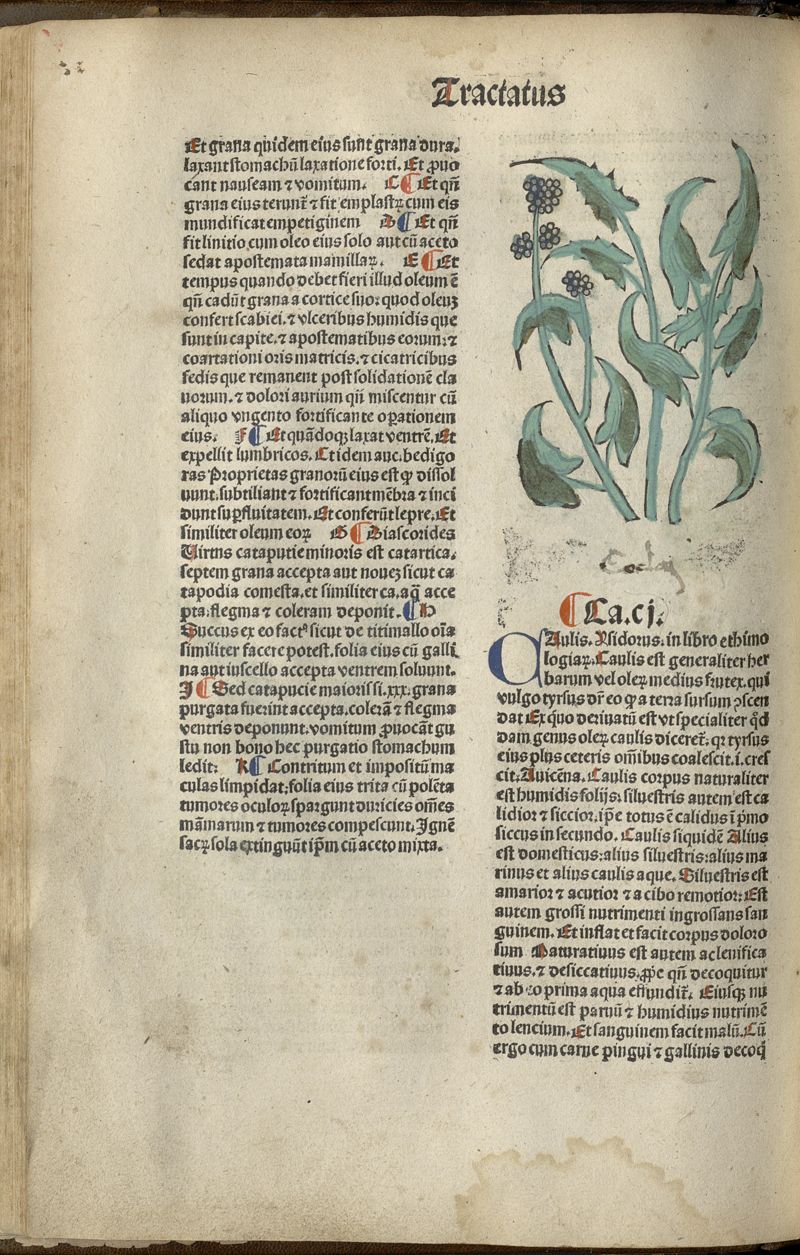 Tractatus
Et grana quidem eius sunt grana dura.
laxant stomachū laxatione forti. Et ꝓuo
cant nauseam ⁊ vomitum. C ¶ Et qñ
grana eius terunt᷑ ⁊ fit emplastꝝ cum eis
mundificat empetiginem D ¶ Et qñ
fit linitio cum oleo eius solo aut cū aceto
sedat apostemata mamillaꝝ. E ¶ Et
tempus quando debet fieri illud oleum ē
qñ cadūt grana a cortice suo: quod oleuꝫ
confert scabiei. ⁊ vlceribus humidis que
sunt in capite. ⁊ apostematibus eorum: ⁊
coartationi oris matricis. ⁊ cicatricibus
sedis que remanent post solidationē cla
uorum. ⁊ dolori aurium qñ miscentur cū
aliquo vngento fortificante oꝑationem
eius. F ¶ Et quādoqꝫ laxat ventrē. Et
expellit lumbricos. Et idem auc. bedigo
ras Proprietas granorū eius est ꝙ dissol
uunt. subtiliant ⁊ fortificant mēbra ⁊ inci
dunt suꝑfluitatem. Et conferūt lepre. Et
similiter oleum eoꝝ G ¶ Diascorides
Virtus cataputie minoris est catartica.
septem grana accepta aut noueꝫ sicut ca
tapodia comesta. et similiter ca. aq̄ acce
pta. flegma ⁊ coleram deponit. ¶ H
Succus ex eo fact⁹ sicut de titimallo oīa
similiter facere potest. folia eius cū galli
na aut iuscello accepta ventrem soluunt.
I ¶ Sed catapucie maioris si. xxx. grana
purgata fuerint accepta. colerā ⁊ flegma
ventris deponunt. vomitum ꝓuocāt gu
stu non bono hec purgatio stomachum
ledit: K ¶ Contritum et impositū ma
culas limpidat: folia eius trita cū polēta
tumores oculoꝝ spargunt duricies oēs
māmarum ⁊ tumores compescunt. Ignē
sacꝝ sola extinguūt ip̄m cū aceto mixta.
¶ Ca. cj.
CAulis. Ysidorus. in libro ethimo
logiaꝝ. Caulis est generaliter her
barum vel oleꝝ medius frutex. qui
vulgo tyrsus dr̄ eo ꝙ a terra sursum ꝯscen
dat Ex quo deriuatū est vt specialiter qd̄
dam genus oleꝝ caulis diceret᷑. qꝛ tyrsus
eius plus ceteris om̄ibus coalescit. i. cres
cit. Auicēna. Caulis corpus naturaliter
est humidis folijs: siluestris autem est ca
lidior ⁊ siccior. ip̄e totus ē calidus ī p̄mo
siccus in secundo. Caulis siquidē Alius
est domesticus: alius siluestris: alius ma
rinus et alius caulis aque. Siluestris est
amarior ⁊ acutior ⁊ a cibo remotior: Est
autem grossi nutrimenti ingrossans san
guinem. Et inflat et facit corpus doloro
sum Maturatiuus est autem ac lenifica
tiuus. ⁊ desiccatiuus. ꝓp̄e qñ decoquitur
⁊ ab eo prima aqua effundit᷑. Eiusqꝫ nu
trimentū est paruū ⁊ humidius nutrimē
to lencium. Et sanguinem facit malū. Cū
ergo cum carne pingui ⁊ gallinis decoq̄